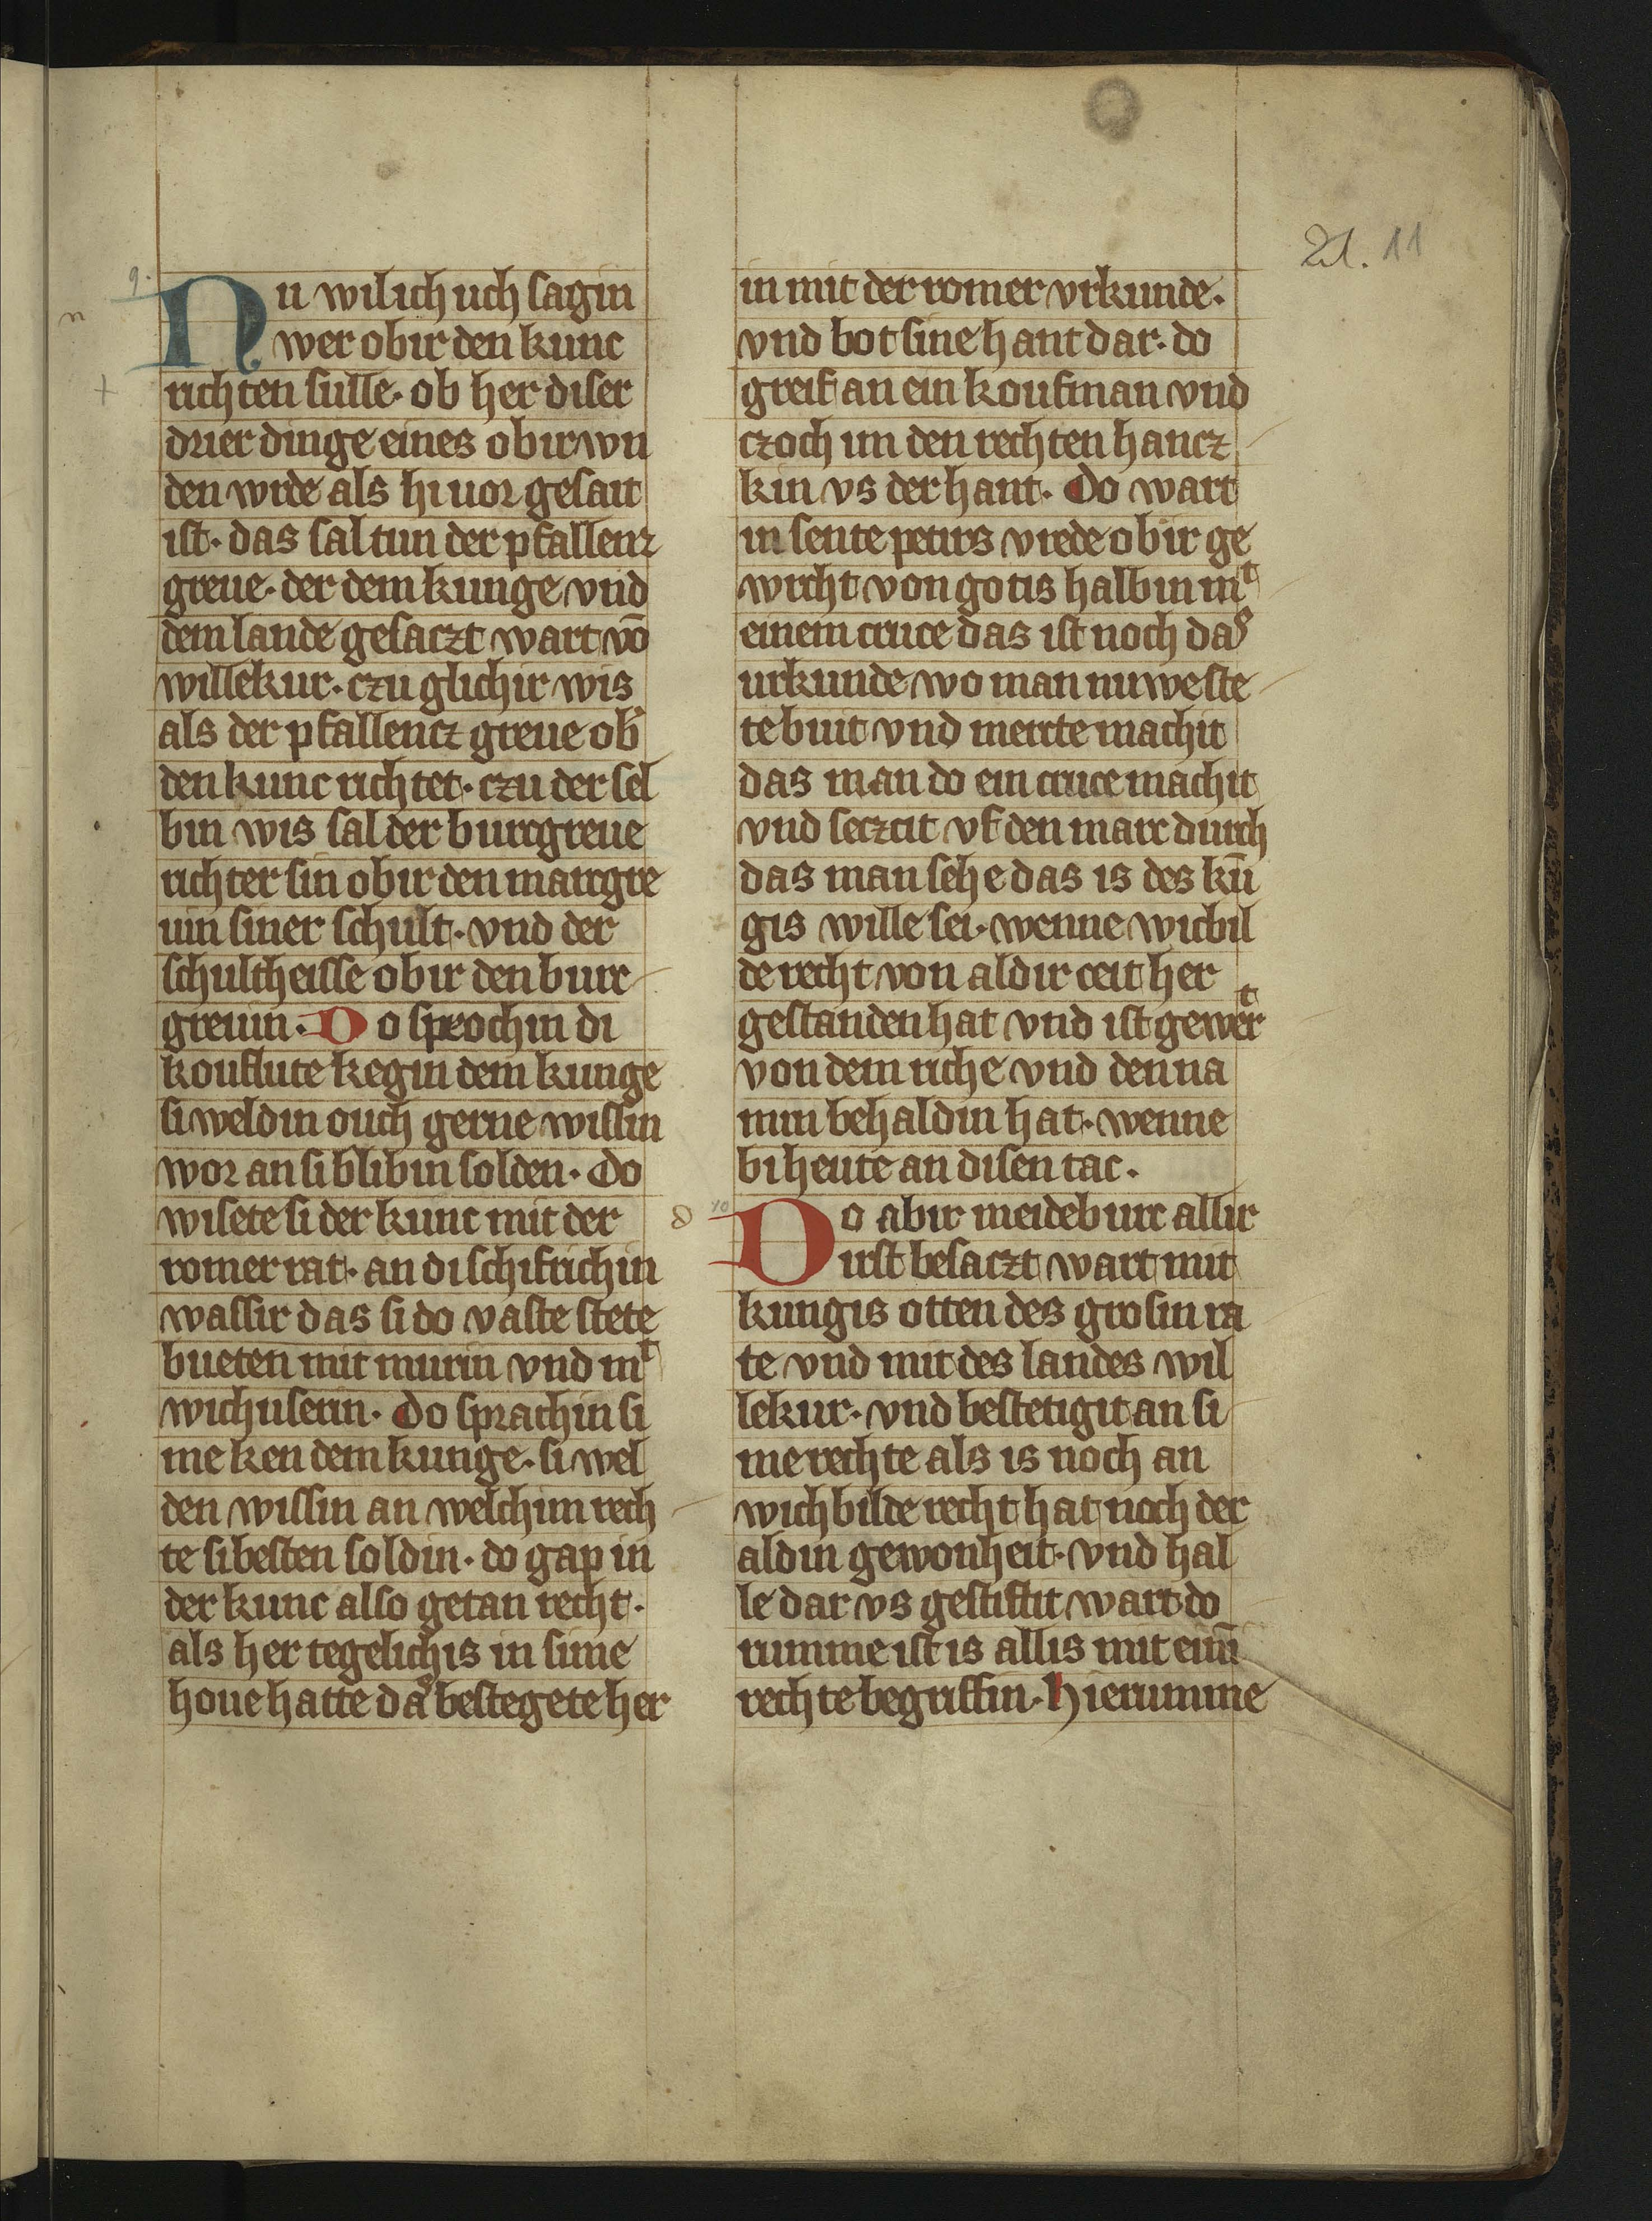 21. 11
9.
Nu wil ich uch sagin
n
wer obir den kunc
richten sulle· ob her diser
drier dinge eines obirwn
den wrde als hi uor gesait
ist· das sal tun der pfallenz
greue· der dem kunge vnd
dem lande gesaczt wart vō
willekur· czu glichir wis
als der pfallencz greue ob
den kunc richtet· czu der sel
bin wis sal der burcgreue
richter sin obir den marcgre
uin siner schult· vnd der
schultheisse obir den burc
greuin· Do sprochin di
kouflute kegin dem kunge
si weldin ouch gerne wissin
wor an si blibin solden· Do
wisete si der kunc mit der
romer rat· an di schifrichin
wassir das si do vaste stete
bueten mit murin vnd mᵗ
wichuserin· Do sprachin si
me ken dem kunge· si wel
den wissin an welchim rech
te si besten soldin· do gap in
der kunc also getan recht·
als her tegelichis in sime
houe hatte daˢ bestegete her
in mit der romer vrkunde·
vnd bot sine hant dar· do
greif an ein koufman vnd
czoch im den rechten hancz
kin vs der hant· Do wart
in sente petirs vrede obir ge
wrcht von gotis halbin mᵗ
einem cruce das ist noch daˢ
urkunde wo man nuwe ste
te buit vnd merrte machit
das man do ein cruce machit
vnd seczcit vf den marc durch
das man sehe das is des kū
gis wille sei· wenne wicbil
de recht von aldir ceit her
gestanden hat vnd ist gewerᵗ
von dem riche vnd den na
min behaldin hat· wenne
bi heute an disen tac·
10
Do abir meideburc allir
irst besaczt wart mit
kungis otten des grosin ra
te vnd mit des landes wil
lekur· vnd bestetigit an si
me rechte als is noch an
wichbilde recht hat noch der
aldin gewonheit· vnd hal
le dar vs gestiftit wart do
rumme ist is allis mit eim̄
rechte begriffin· Hierumme